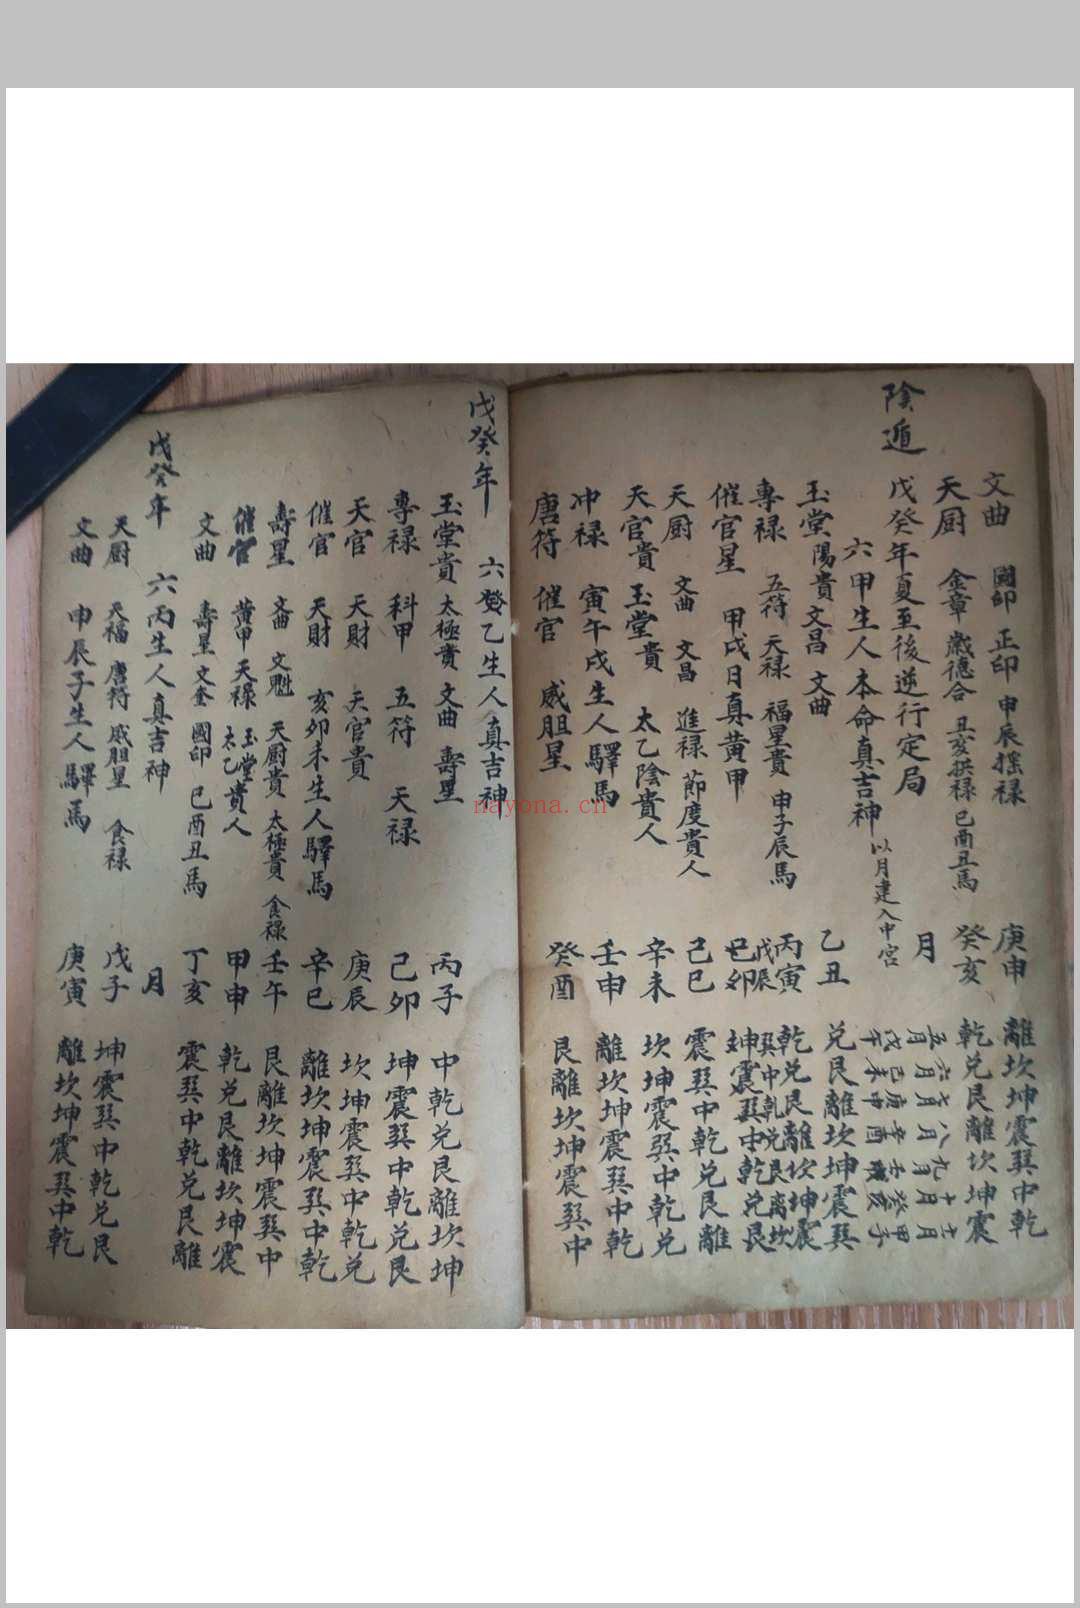 文曲 國印 正印 申辰搖禄 庚申 離坎坤震巽中乾
天厨 金章 歲德合 丑亥拱禄 巳酉丑馬 癸亥 乾兑艮離坎坤震
陰遁
戊癸年夏至後逆行定局 月 五月 六月 七月 八月 九月 十月 十一月
戊午 己未 庚申 辛酉 壬戌 癸亥 甲子
六甲生人本命真吉神 以月建入中宫
玉堂陽貴 文昌 文曲 乙丑 兑艮離坎坤震巽
專禄 五符 天禄 福星貴 申子辰馬 丙寅 乾兑艮離坎坤震
戊辰 巽中乾兑艮離坎
催官星 甲戌日真黄甲 己卯 坤震巽中乾兑艮
天厨 文曲 文昌 進禄 節度貴人 己巳 震巽中乾兑艮離
天官貴 玉堂貴 太乙陰貴人 辛未 坎坤震巽中乾兑
冲禄 寅午戌生人驛馬 壬申 離坎坤震巽中乾
唐符 催官 威胆星 癸酉 艮離坎坤震巽中
戊癸年 六癸乙生人真吉神
玉堂貴 太極貴 文曲 壽星 丙子 中乾兑艮離坎坤
專禄 科甲 五符 天禄 己卯 坤震巽中乾兑艮
天官 天財 天官貴 庚辰 坎坤震巽中乾兑
催官 天財 亥卯未生人驛馬 辛巳 離坎坤震巽中乾
壽星 文曲 文魁 天厨貴 太極貴 食禄 壬午 艮離坎坤震巽中
催官 黄甲 天禄 玉堂貴人 太乙 甲申 乾兑艮離坎坤震
文曲 壽星 文奎 國印 巳酉丑馬 丁亥 震巽中乾兑艮離
戊癸年 六丙生人真吉神 月
天厨 天福 唐符 威胆星 食禄 戊子 坤震巽中乾兑艮
文曲 申辰子生人驛馬 庚寅 離坎坤震巽中乾
nayona.cn